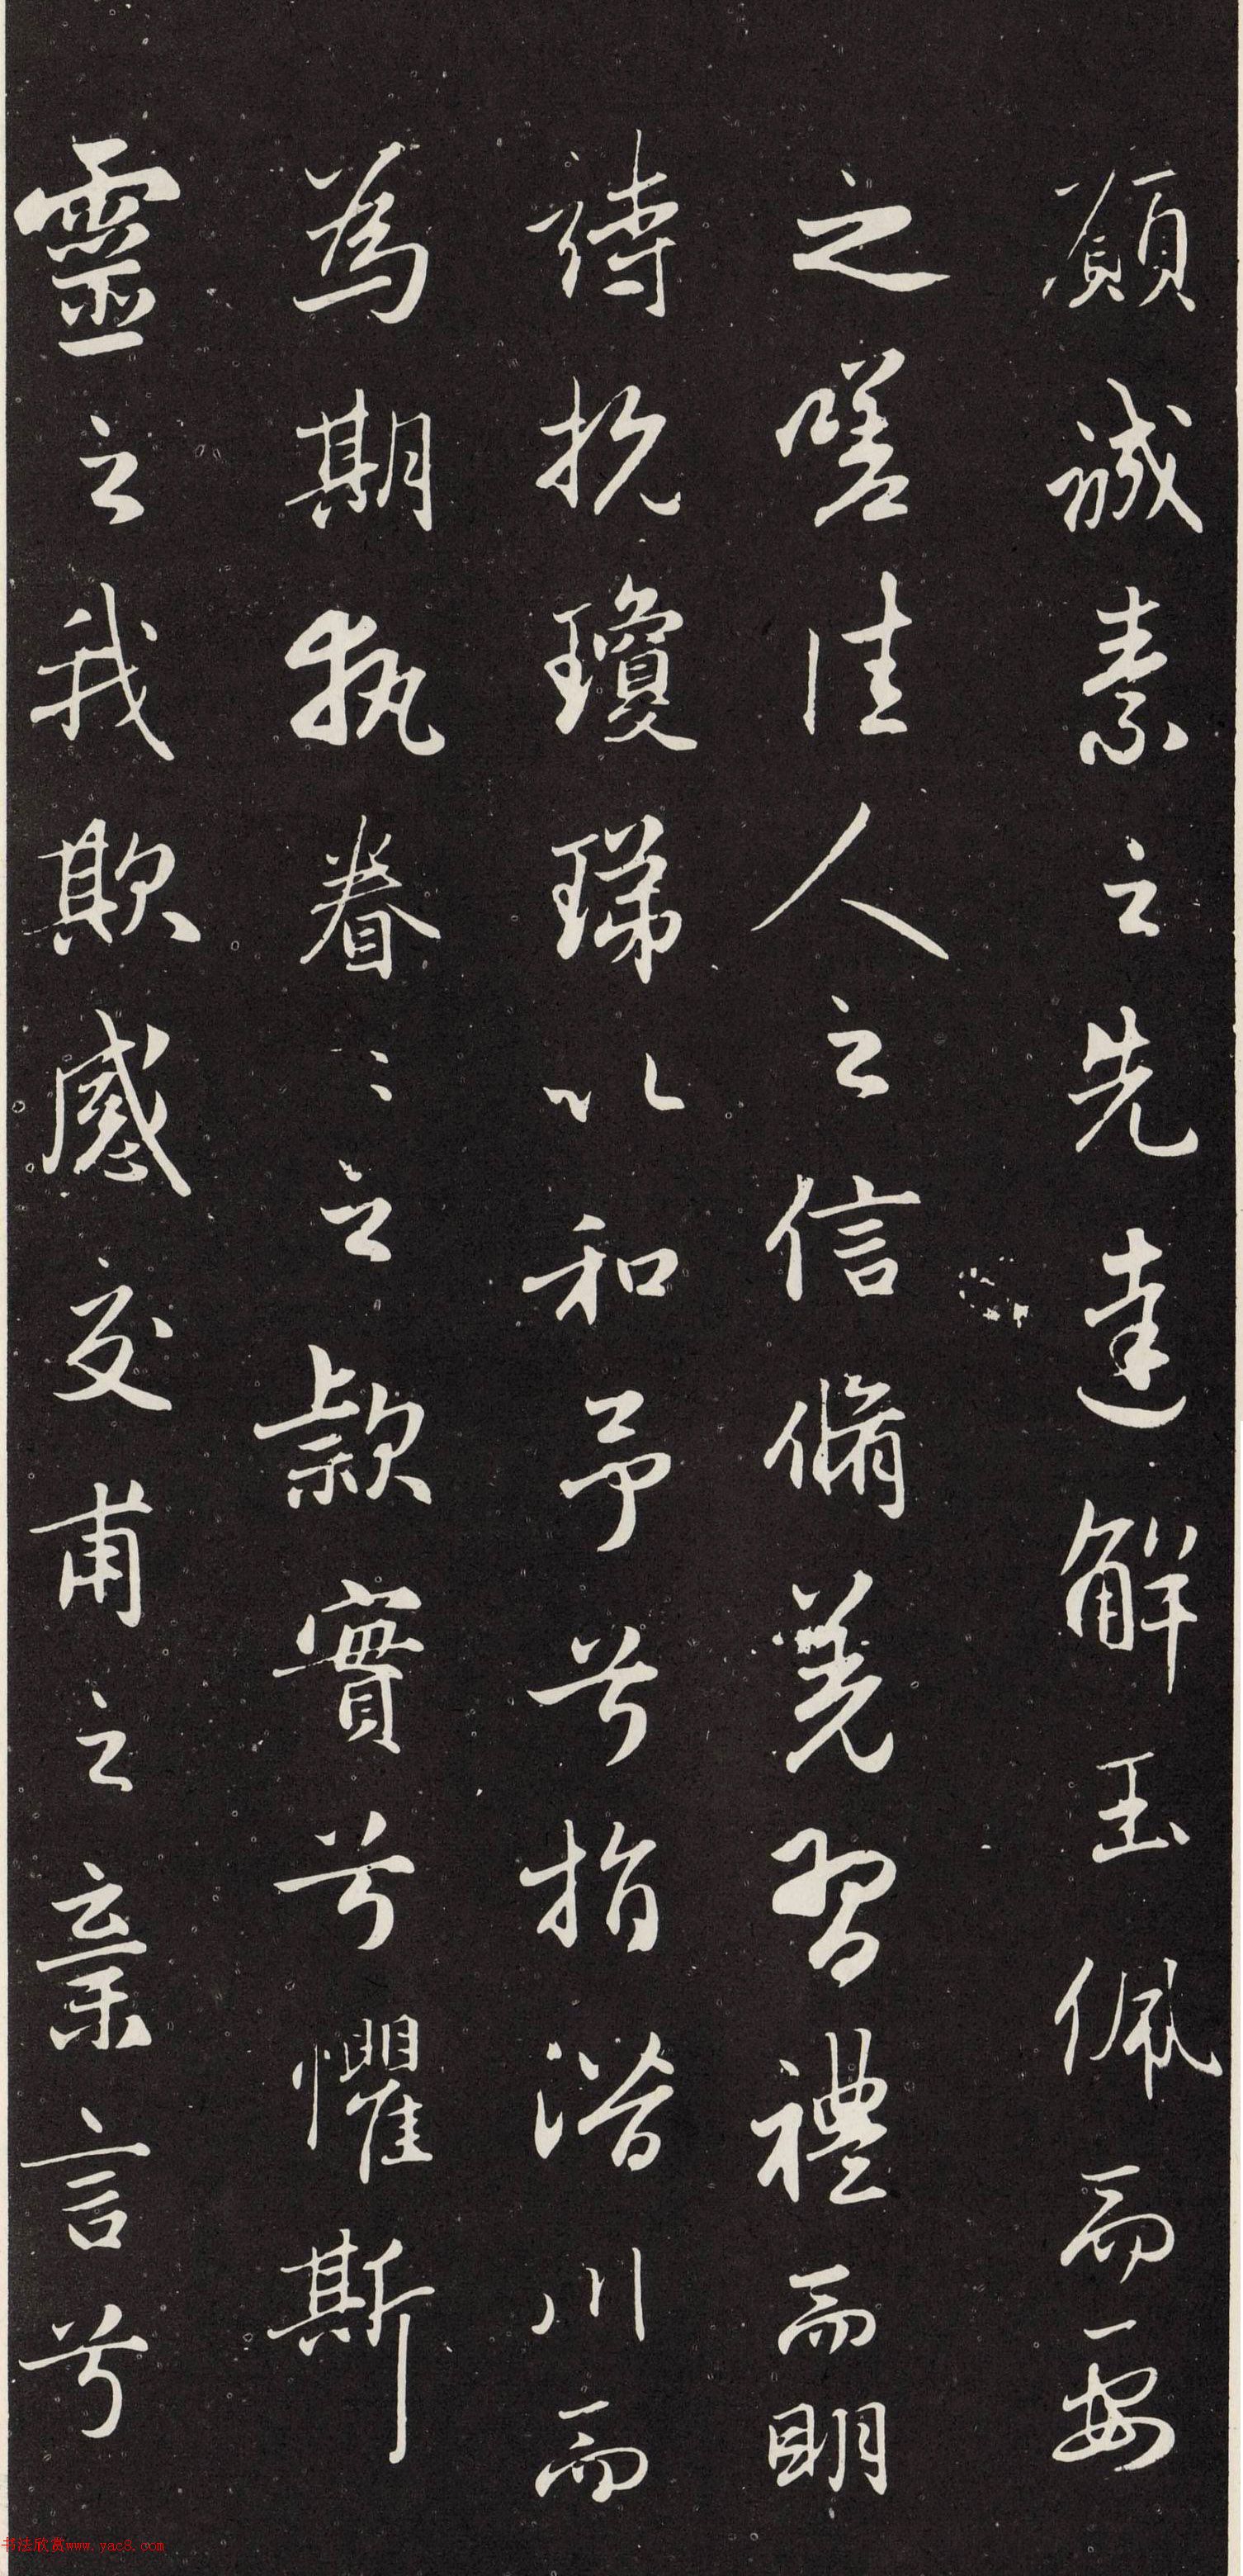 願誠素之先達解玉佩而要
之嗟佳人之信脩羌習禮而明
詩抗瓊珶以和予兮指潛川而
為期執眷〻之款實兮懼斯
靈之我欺感交甫之棄言兮
书法欣赏www.yac8.com